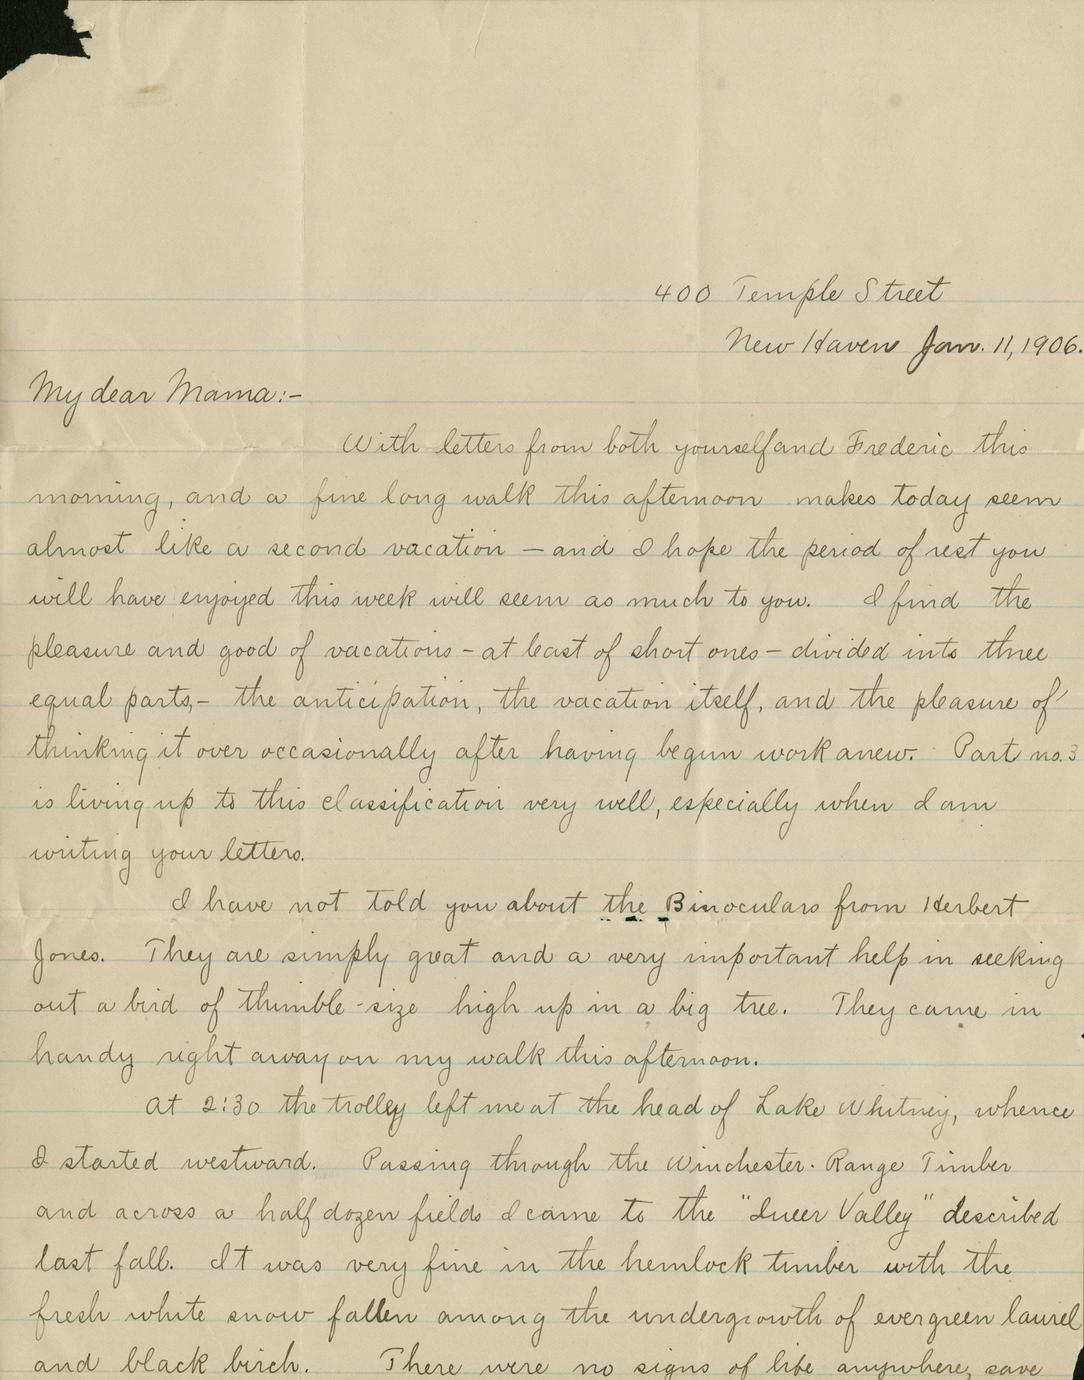 400 Temple Street
New Haven Jan. 11, 1906.
My dear Mama:-
With letters from both yourself and Frederic this
morning, and a fine long walk this afternoon makes today seem
almost like a second vacation - and I hope the period of rest you
will have enjoyed this week will seem as much to you. I find the
pleasure and good of vacations - at least of short ones - divided into three
equal parts,- the anticipation, the vacation itself, and the pleasure of
thinking it over occasionally after having begun work anew. Part no. 3
is living up to this classification very well, especially when I am
writing your letters.
I have not told you about the Binoculars from Herbert
Jones. They are simply great and a very important help in seeking
out a bird of thimble-size high up in a big tree. They came in
handy right away on my walk this afternoon.
At 2:30 the trolley left me at the head of Lake Whitney, whence
I started westward. Passing through the Winchester Range Timber
and across a half dozen fields I came to the "Queer Valley" described
last fall. It was very fine in the hemlock timber with the
fresh white snow fallen among the undergrowth of evergreen laurel
and black birch. There were no signs of life anywhere, save